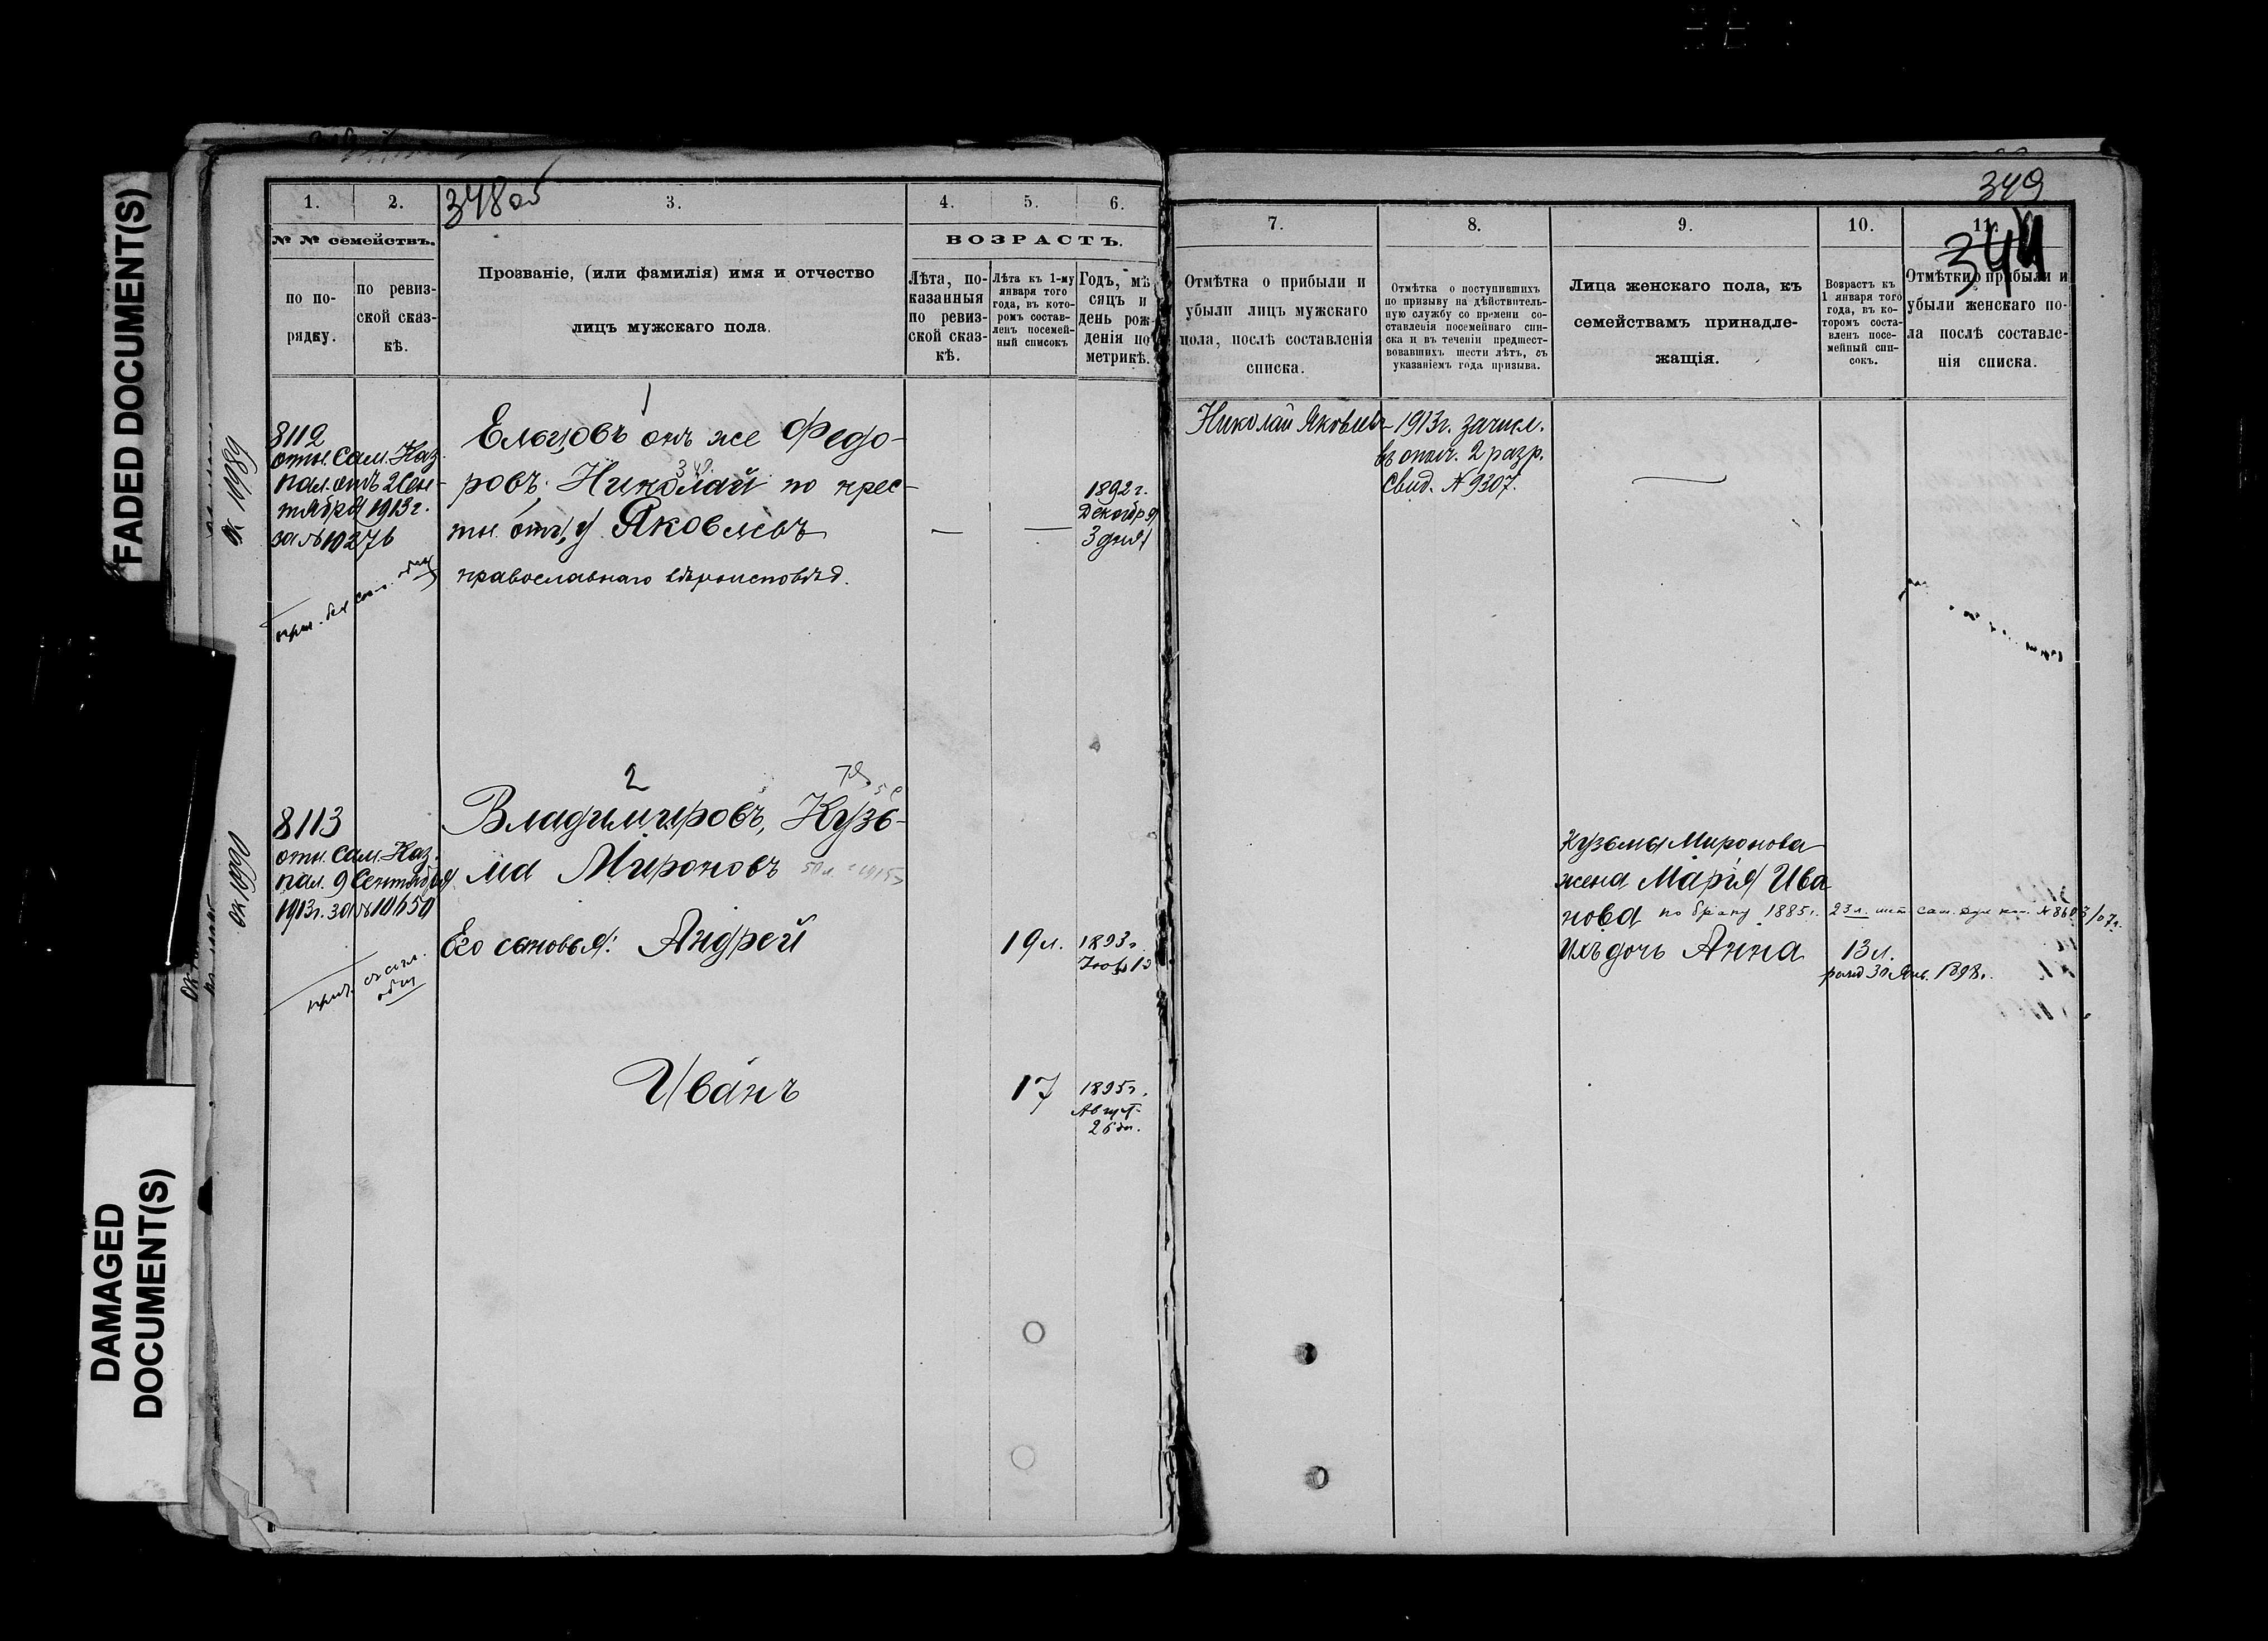 FADED DOCUMENT(S)
DAMAGED
DOCUMENT(S)
348 об
349
344
1.
2.
3.
4.
5.
6.
№ № семействъ.
ВОЗРАСТЪ.
по по-
рядку.
по ревиз-
ской сказ-
кѣ.
Прозваніе, (или фамилія) имя и отчество
лицъ мужскаго пола.
Лѣта, по-
казанныя
по ревиз-
ской сказ-
кѣ.
Лѣта къ 1-му
января того
года, въ кото-
ромъ состав-
ленъ посемей-
ный списокъ
Годъ, мѣ
сяцъ и
день рож-
денія по
метрикѣ.
ок 10989
8112
отн. Сам. Каз.
пал. отъ 2 Сен-
тября 1913 г.
за №10276
1
онъ же Федо-
ровъ, Николай по крес-
тн. отцу Яковлевъ
православнаго вѣроисповѣд.
1892 г.
Декабря
3 дня
ок 10990
8113
отн. Сам. Каз.
пал. 9 Сентября
1913 г. за №10650
2
Владимировъ, Кузь-
ма Мироновъ
Его сыновья: Андрей
19 л.
1893 г.
Иванъ
17
1895 г.
Август
26 дн.
7.
8.
9.
10.
11.
Отмѣтка о прибыли и
убыли лицъ мужскаго
пола, послѣ составленія
списка.
Отмѣтка о поступившихъ
по призыву на дѣйствитель-
ную службу со времени со-
ставленія посемейнаго спи-
ска и въ теченіи предшест-
вовавшихъ шести лѣтъ, съ
указаніемъ года призыва.
Лица женскаго пола, къ
семействамъ принадле-
жащія.
Возрастъ къ
1 января того
года, въ ко-
торомъ соста-
вленъ посе-
мейный спи-
сокъ.
Отмѣтки о прибыли и
убыли женскаго по-
ла послѣ составле-
нія списка.
Николай Яковлевъ
1913 г. зачисл.
въ ополч. 2 разр.
Свид. № 9307.
Кузьмы Миронова
жена Марія Ива
нова по браку 1885 г. 23 л.
Ихъ дочь Анна
13 л.
рожд 30 Янв. 1898 г.